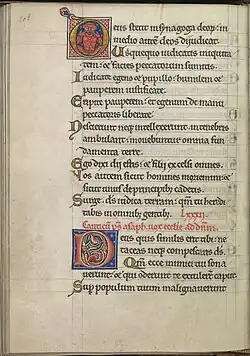 Deus stetit in synagoga deoꝝ: in
medio autē deos dijudicat.
Usquequo iudicatis iniquita
tem: & facies peccatorum sumitis.
Iudicate egeno & pupillo: humilem &
pauperem iustificate.
Eripite pauperem: et egenum de manu
peccatoris liberate.
Nescierunt neqꝫ intellexerunt, in tenebris
ambulant: mouebuntur omnia fun
damenta terre.
Ego dixi dii estis: & filii excelsi omnes.
Vos autem sicut homines moriemini: &
sicut unus de principibꝫ cadetis.
Surge dꝰs iudica terram: qm̄ tu heredi
tabis in omnibꝫ gentibꝫ. Lxxxii.
Canticū pꝰs asaph
Deus quis similis erit tibi: ne
taceas neqꝫ compescaris dꝰs.
Qm̄ ecce inimici tui sona
uerunt: & qui oderunt te extulerr̄t caput.
Super populum tuum malignauerunt